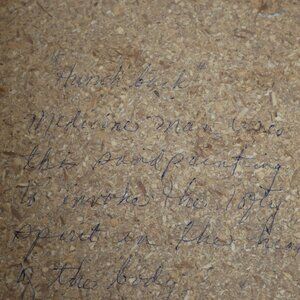 "Hunch back"
Medicine man uses
the sandpainting
to invoke the
spirit in the
of the body